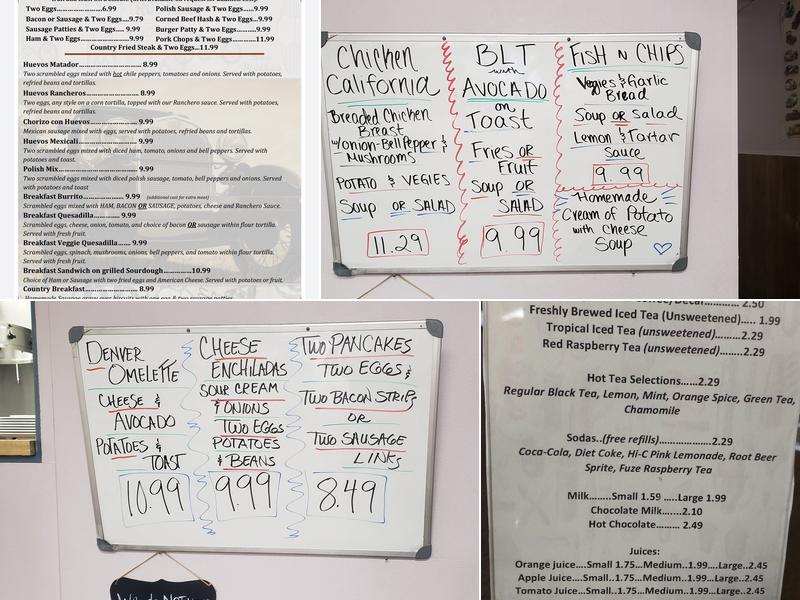 Two Eggs.............6.99
Bacon or Sausage & Two Eggs...9.79
Sausage Patties & Two Eggs..... 9.99
Ham & Two Eggs.................9.99
Polish Sausage & Two Eggs...9.99
Corned Beef Hash & Two Eggs...9.99
Burger Patty & Two Eggs.........9.99
Pork Chops & Two Eggs............11.99
Country Fried Steak & Two Eggs...11.99
Huevos Matador........................... 8.99
Two scrambled eggs mixed with hot chile peppers, tomatoes and onions. Served with potatoes,
refried beans and tortillas.
Huevos Rancheros......................... 8.99
Two eggs, any style on a corn tortilla, topped with our Ranchero sauce. Served with potatoes,
refried beans and tortillas.
Chorizo con Huevos...................... 9.99
Mexican sausage mixed with eggs, served with potatoes, refried beans and tortillas.
Huevos Mexicali........................... 9.99
Two scrambled eggs mixed with diced ham, tomato, onions and bell peppers. Served with
potatoes and toast.
Polish Mix................................... 9.99
Two scrambled eggs mixed with diced polish sausage, tomato, onions and bell peppers. Served
with potatoes and toast
Breakfast Burrito................... 9.99 (additional cost for extra meat)
Scrambled eggs mixed with HAM, BACON OR SAUSAGE, potatoes, cheese and Ranchero Sauce.
Breakfast Quesadilla............. 9.99
Scrambled eggs, cheese, onion, tomato, and choice of bacon OR sausage within flour tortilla.
Served with fresh fruit.
Breakfast Veggie Quesadilla...... 9.99
Scrambled eggs, spinach, mushrooms, onions, bell peppers, and tomato within flour tortilla.
Served with fresh fruit.
Breakfast Sandwich on grilled Sourdough............10.99
Choice of Ham or Sausage with two fried eggs and American Cheese. Served with potatoes or fruit.
Country Breakfast................... 8.99
Homemade Sausage gravy over biscuits with one egg & two sausage patties
Chicken
California
Breaded Chicken
Breast
w/onion-Bell Pepper &
Mushrooms
Potato & Vegies
Soup or Salad
11.29
BLT
with
Avocado
on
Toast
Fries or
Fruit
Soup or
Salad
9.99
Fish N Chips
Vegies & Garlic
Bread
Soup or Salad
Lemon & Tartar
Sauce
9.99
Homemade
Cream of Potato
with Cheese
Soup
Denver
Omelette
Cheese &
Avocado
Potatoes &
Toast
10.99
Cheese
Enchiladas
Sour Cream
& Onions
Two Eggs
Potatoes
& Beans
9.99
Two Pancakes
Two Eggs &
Two Bacon Strips
or
Two Sausage
Links
8.49
Coffee/Decaf............ 2.50
Freshly Brewed Iced Tea (Unsweetened).... 1.99
Tropical Iced Tea (unsweetened)........2.29
Red Raspberry Tea (unsweetened)..2.29
Hot Tea Selections......2.29
Regular Black Tea, Lemon, Mint, Orange Spice, Green Tea,
Chamomile
Sodas..(free refills)...................2.29
Coca-Cola, Diet Coke, Hi-C Pink Lemonade, Root Beer
Sprite, Fuze Raspberry Tea
Milk........Small 1.59 ....Large 1.99
Chocolate Milk.......2.10
Hot Chocolate........ 2.49
Juices:
Orange juice....Small 1.75...Medium..1.99....Large..2.45
Apple Juice....Small..1.75...Medium..1.99...Large..2.45
Tomato Juice...Small..1.75...Medium..1.99...Large..2.45